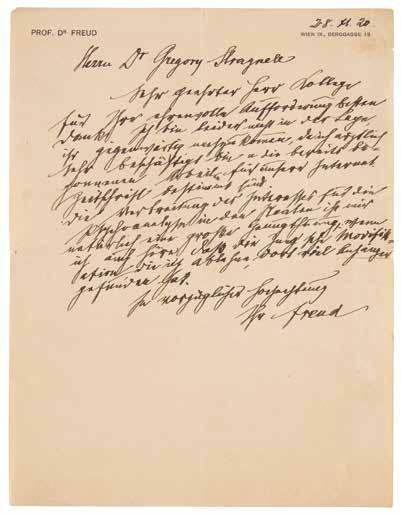 PROF. DR. FREUD
28. XI. 20.
WIEN IX., BERGGASSE 19
Herrn Dr Gregory Stragnell
Sehr geehrter Herr Kollege
Für Ihre ehrenvolle Aufforderung besten
Dank! Ich bin leider nicht in der Lage,
ihr gegenwärtig nachzukommen, da ich ärztlich
sehr beschäftigt bin, u die bereits be-
gonnenen Arbeiten für unsere Internat
Zeitschrift bestimmt sind.
Die Verbreitung des Interesses für die
Psychoanalyse in den Staaten ist mir
natürlich eine große Genugthuung, wenn
ich auch höre, daß die Jung'sche Modifik-
ation, die ich ablehne, dort viel Anhänger
gefunden hat.
In vorzüglicher Hochachtung
Ihr Freud